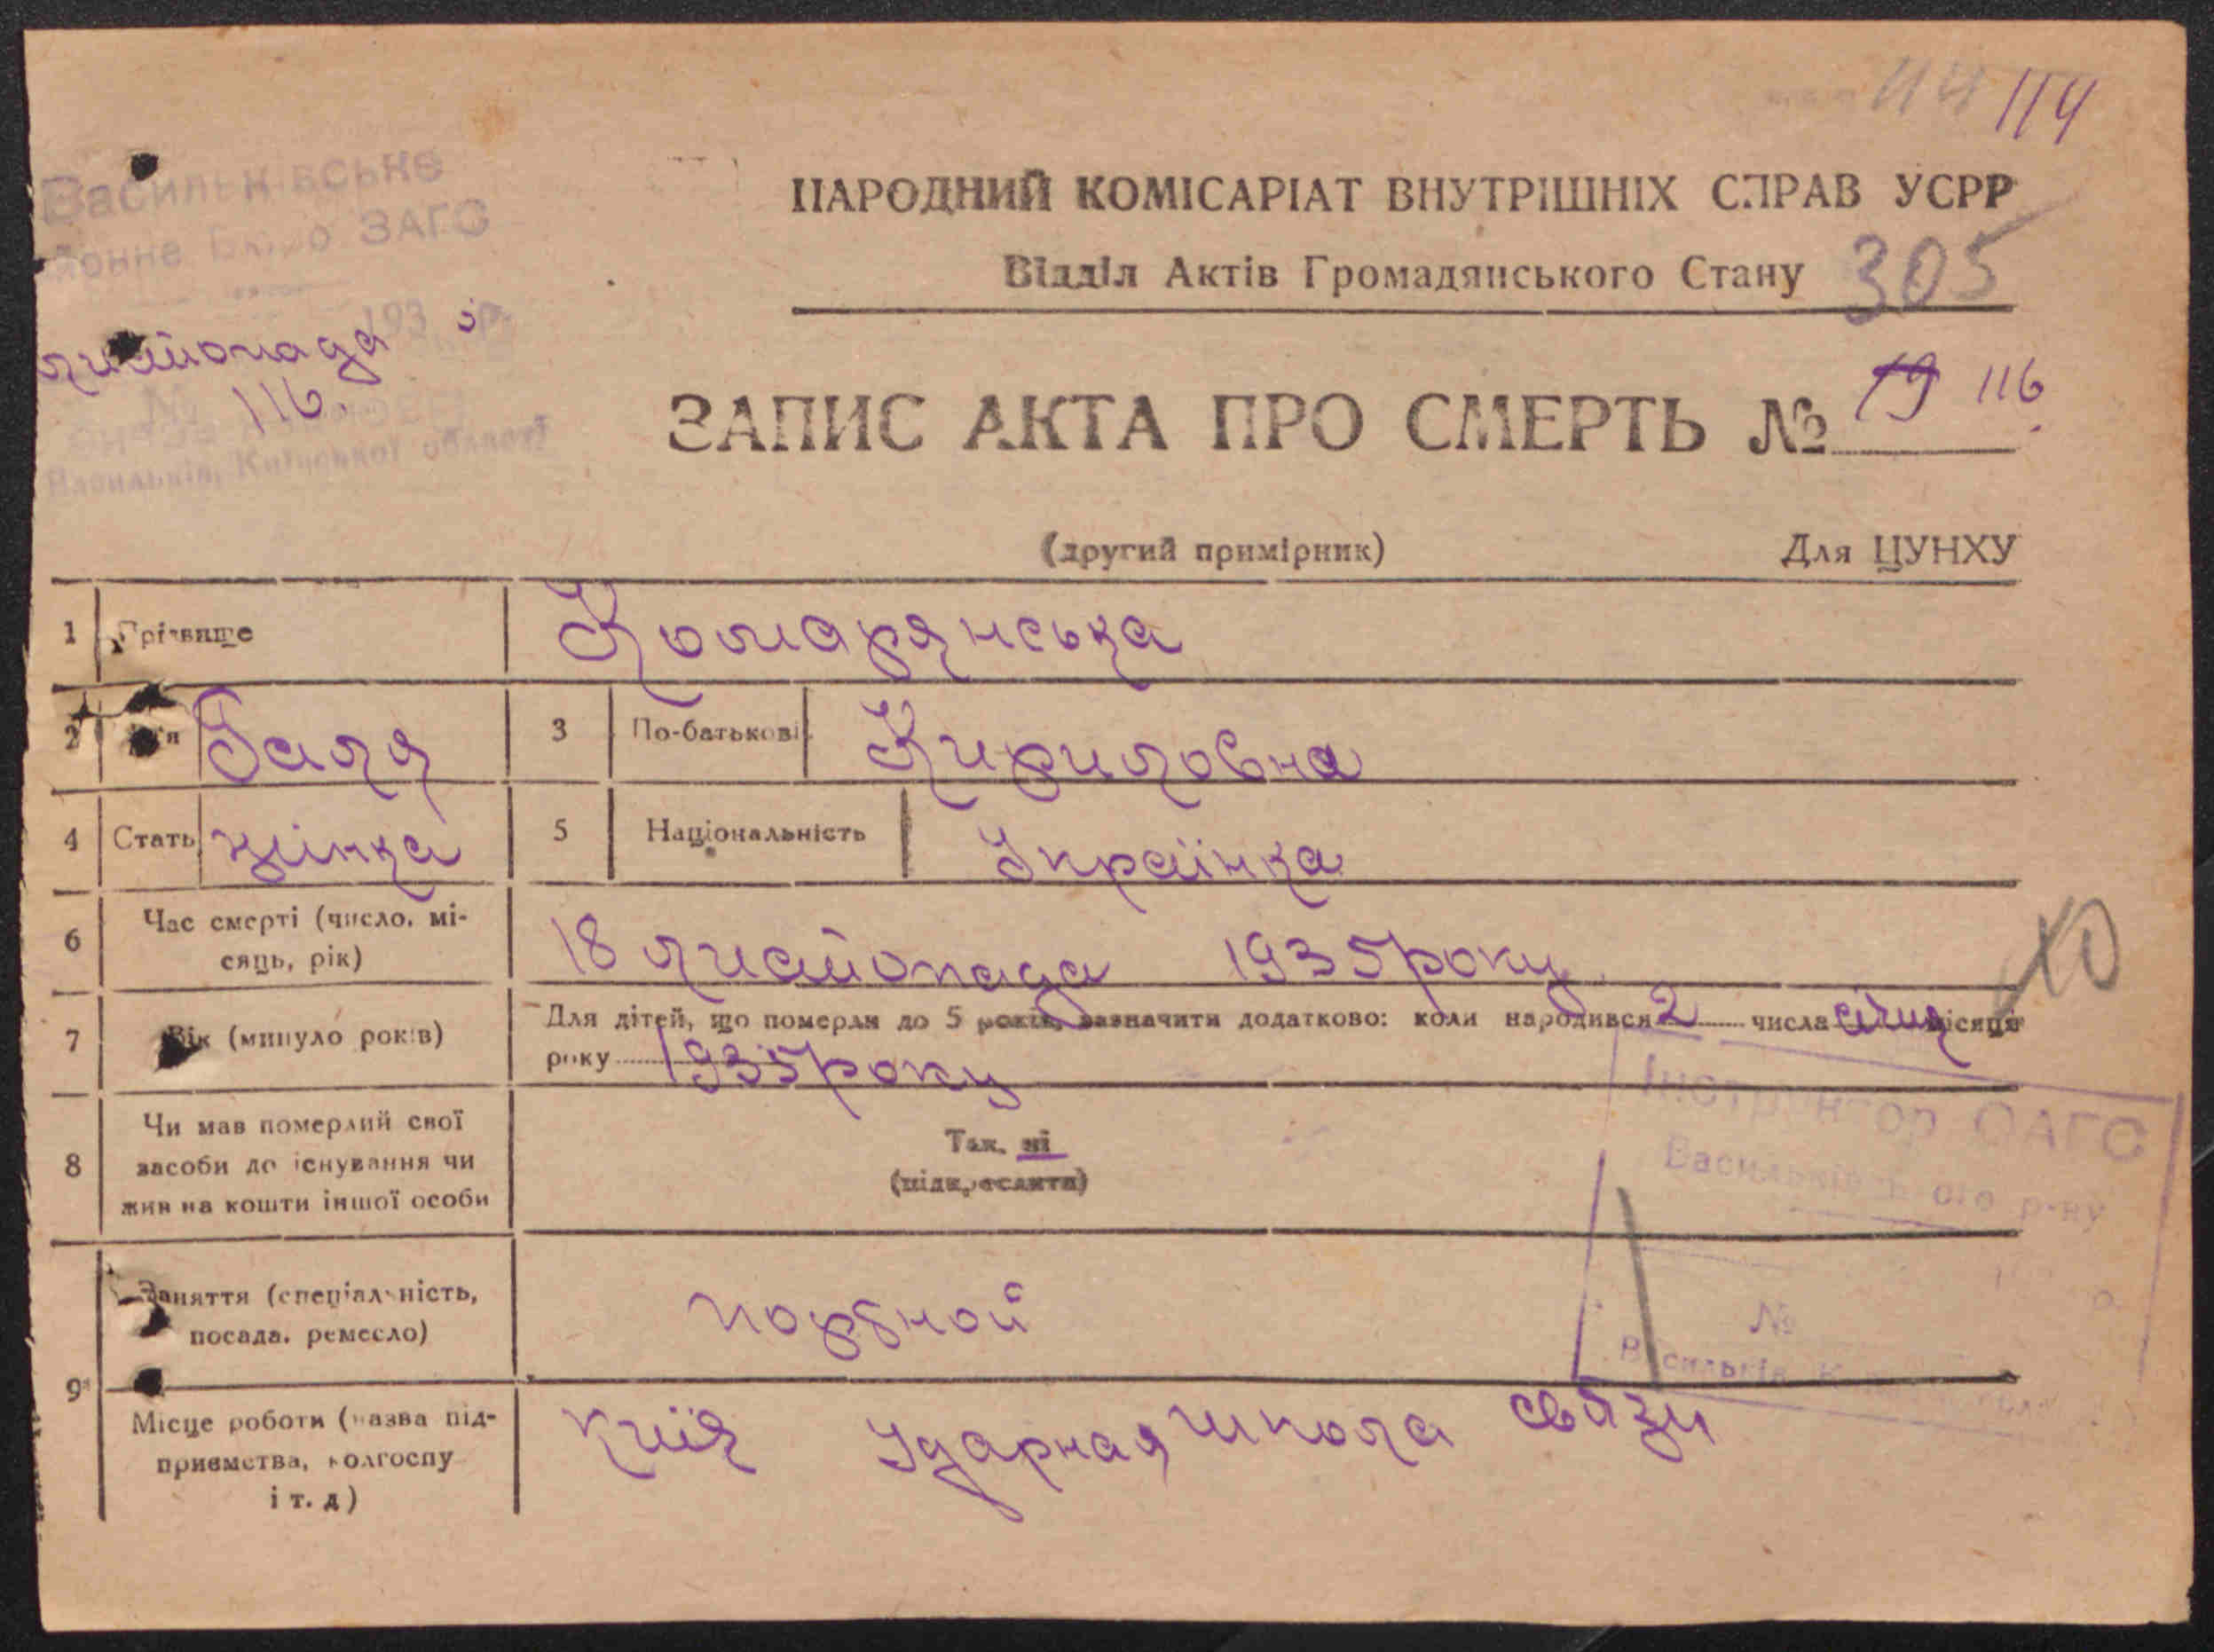 114 114
Васильківське
йонне Бюро ЗАГС
листопада 193 5 р.
№ 116.
Васильків, Київської області
НАРОДНИЙ КОМІСАРІАТ ВНУТРІШНІХ СПРАВ УСРР
Відділ Актів Громадянського Стану
305
ЗАПИС АКТА ПРО СМЕРТЬ № 19 116.
(другий примірник) Для ЦУНХУ
1 Прізвище Комарянська
2 Ім'я Галя 3 По-батькові Кириловна
4 Стать жінка 5 Національність Українка
6 Час смерті (число, мі-
сяць, рік) 18 листопада 1935 року
7 Вік (минуло років) Для дітей, що померли до 5 років, зазначити додатково: коли народився 2 числа січня місяця
року 1935 року
Інструктор ОАГС
Васильківського р-ну
№
8 Чи мав померлий свої
засоби до існування чи
жив на кошти іншої особи
Так, ні
(підкреслити)
9 Заняття (спеціальність,
посада, ремесло)
Місце роботи (назва під-
приємства, колгоспу
і т. д)
Київ Ударная школа связи